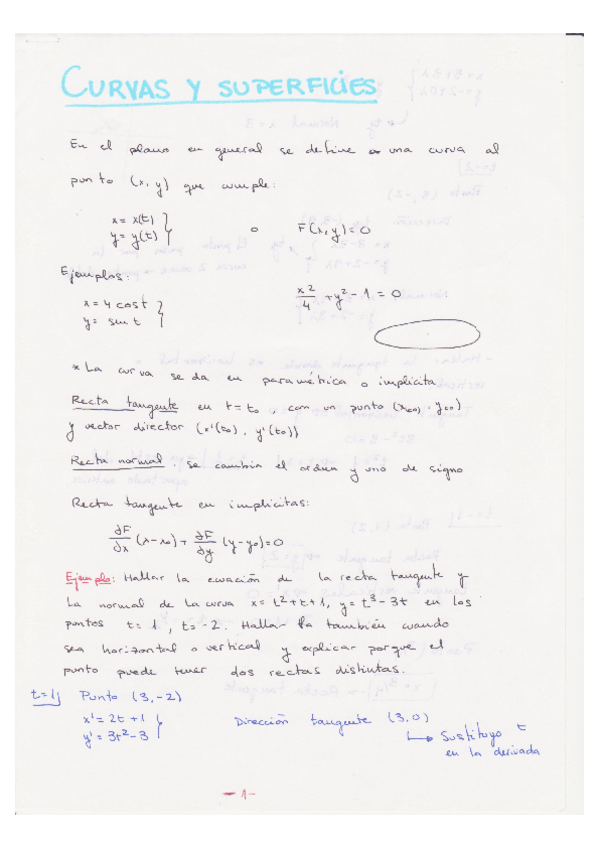 CURVAS Y SUPERFICIES
En el plano en general se define a una curva al
punto (x, y) que cumple:
x = x(t)
y = y(t) } o F(x, y) = 0
Ejemplos:
x = 4 cos t
y = sin t } x2/4 + y² - 1 = 0
* La curva se da en paramétrica o implicita
Recta tangente en t = t₀, con un punto (x(t0), y(t0))
y vector director (x'(t₀), y'(t₀))
Recta normal: se cambia el orden y uno de signo
Recta tangente en implicitas:
∂F/∂x (x-x₀) + ∂F/∂y (y-y₀) = 0
Ejemplo: Hallar la ecuación de la recta tangente y
la normal de la curva x = t² + t + 1, y = t³ - 3t en los
puntos t = 1, t = -2. Hallar la también cuando
sea horizontal o vertical y explicar porque el
punto puede tener dos rectas distintas.
t = 1 Punto (3, -2)
x' = 2t + 1
y' = 3t² - 3 } Dirección tangente (3, 0)
↳ Sustituyo t
en la derivada
- 1 -